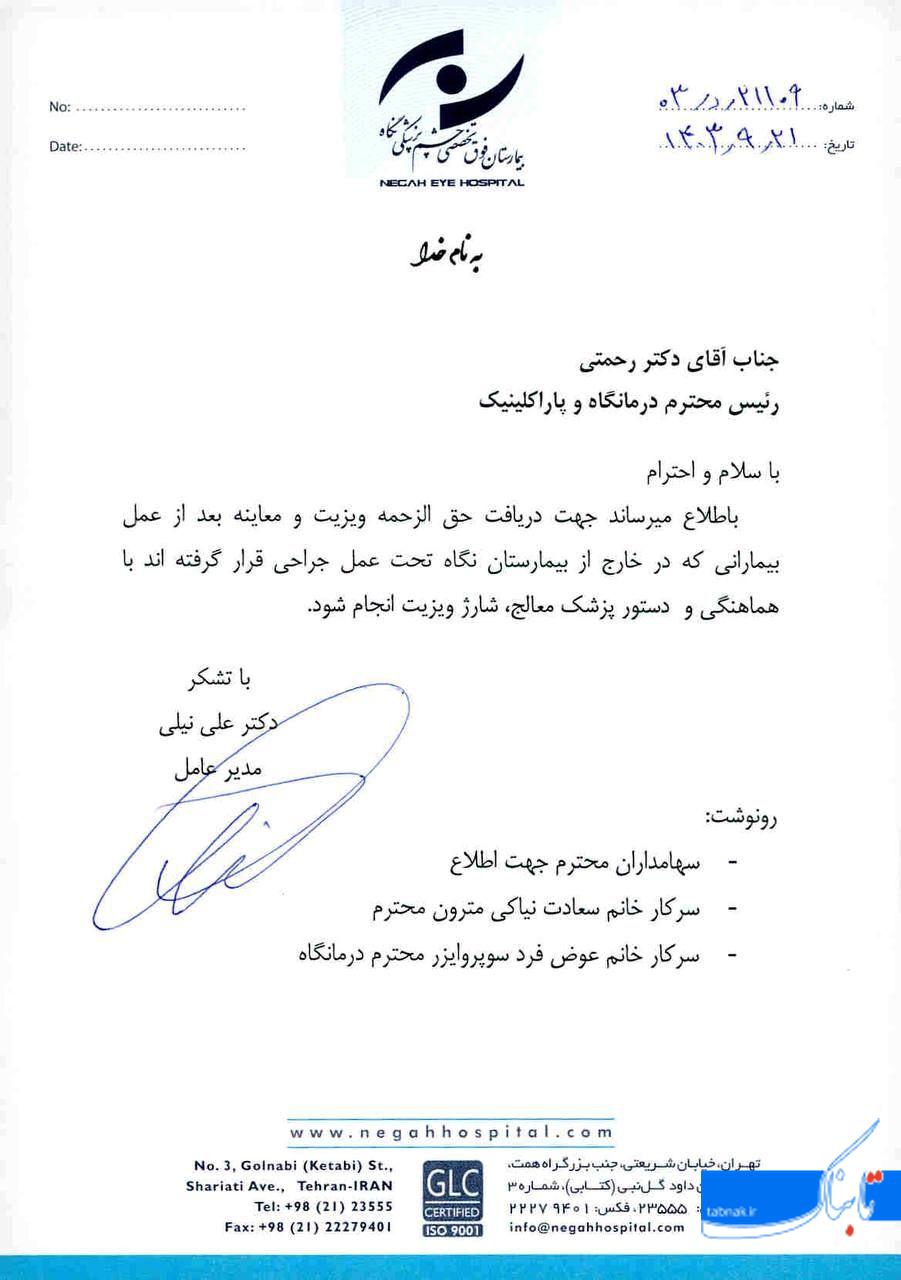 No: ............................
Date:............................
شماره: ۲۱۱۰۹ر د ر۰۳
تاریخ: ۱۴۰۳ر۹ر۲۱
بیمارستان فوق تخصصی چشم پزشکی نگاه
NEGAH EYE HOSPITAL
به نام خدا
جناب آقای دکتر رحمتی
رئیس محترم درمانگاه و پاراکلینیک
با سلام و احترام
باطلاع میرساند جهت دریافت حق الزحمه ویزیت و معاینه بعد از عمل
بیمارانی که در خارج از بیمارستان نگاه تحت عمل جراحی قرار گرفته اند با
هماهنگی و دستور پزشک معالج، شارژ ویزیت انجام شود.
با تشکر
دکتر علی نیلی
مدیر عامل
رونوشت:
- سهامداران محترم جهت اطلاع
- سرکار خانم سعادت نیاکی مترون محترم
- سرکار خانم عوض فرد سوپروایزر محترم درمانگاه
www.negahhospital.com
No. 3, Golnabi (Ketabi) St.,
Shariati Ave., Tehran-IRAN
Tel: +98 (21) 23555
Fax: +98 (21) 22279401
GLC
CERTIFIED
ISO 9001
تهـران، خیابان شـریعتی، جنب بـزرگـراه همت،
داود گـل‌نبی (کتـابی)، شمـاره ۳
۲۳۵۵۵، فکس: ۲۲۲۷۹۴۰۱
info@negahhospital.com
تابناک
tabnak.ir